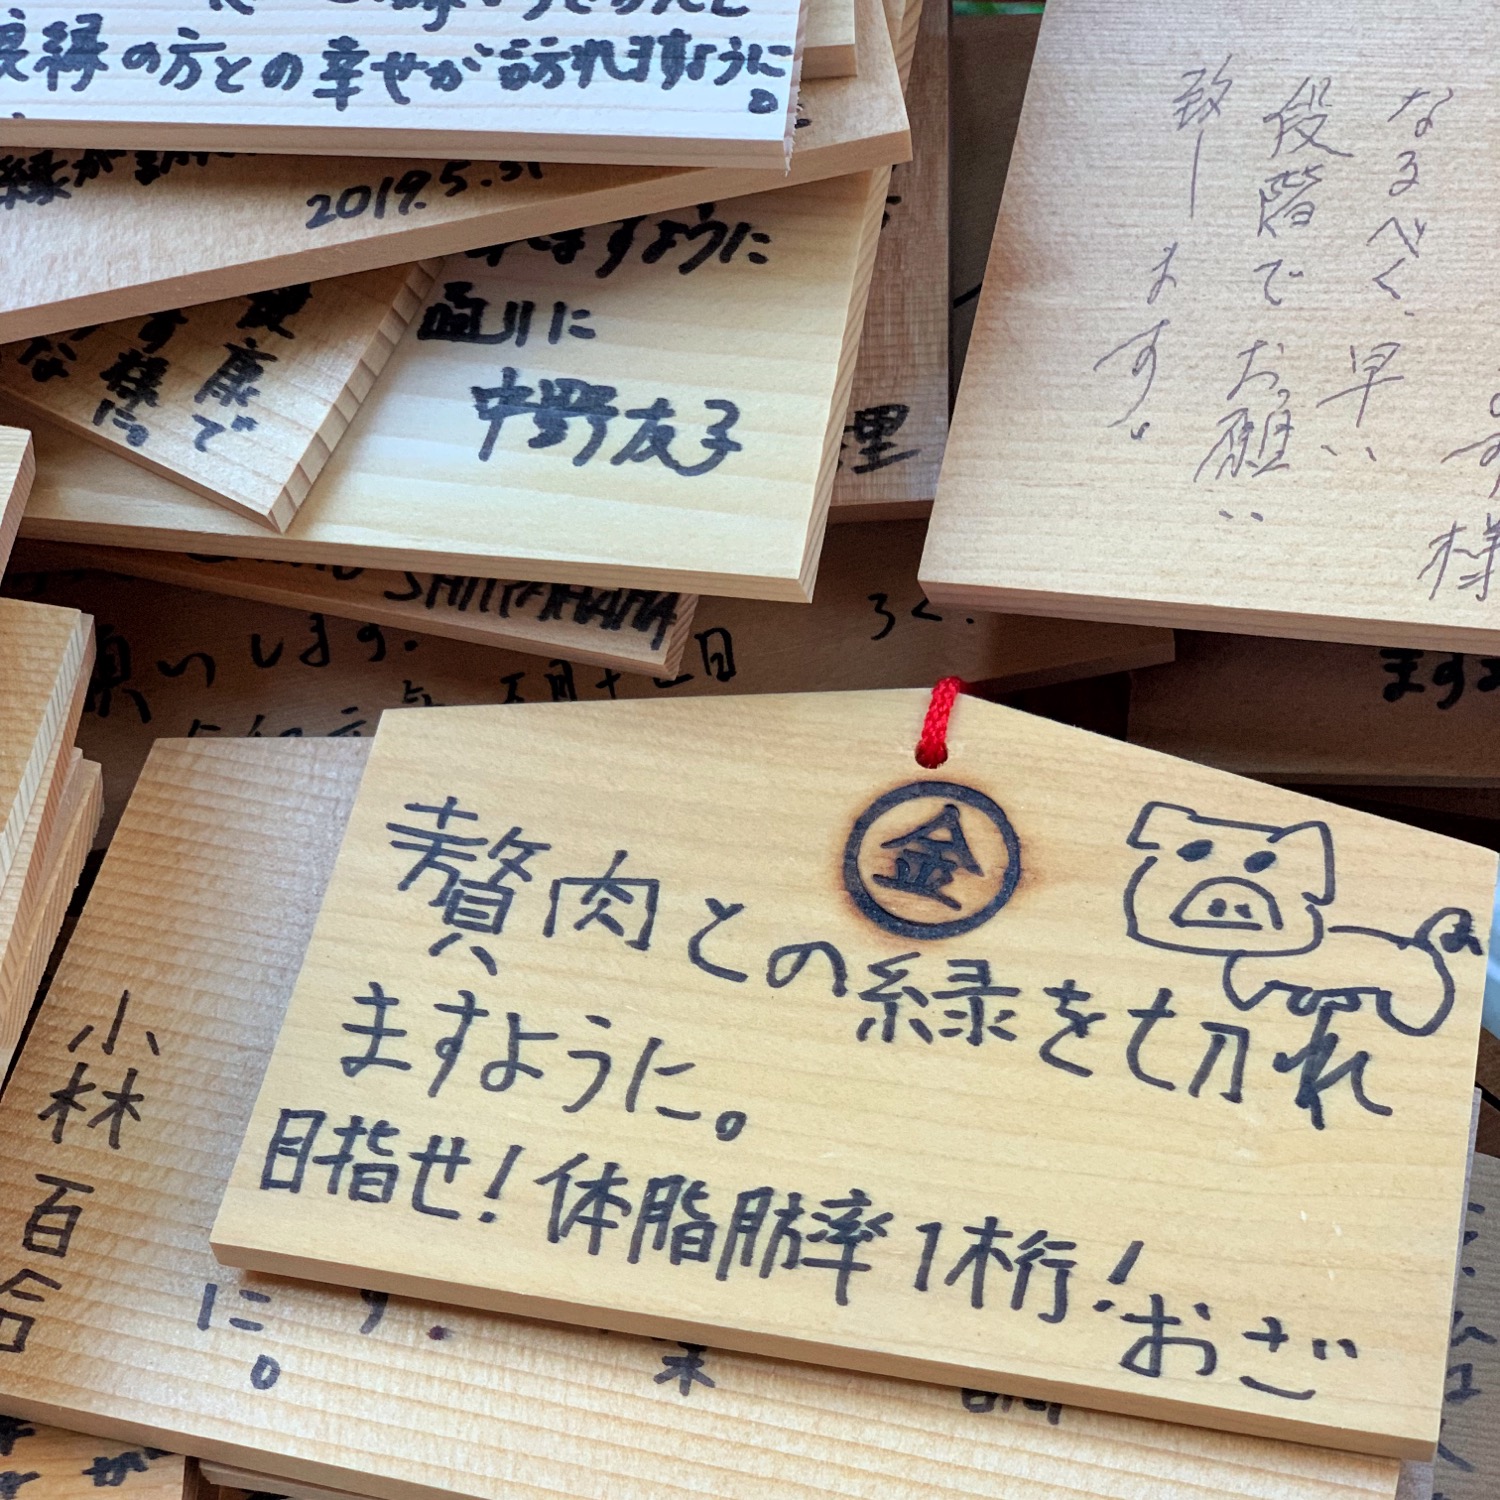 良縁の方との幸せが訪れますように。
2019.5.31
ますように
に
中野友子
健康で
す様に。
な
里
なるべく、早い
段階でお願い
致します。
様
SHITAHARA
願いします。
月十二日
ろく.
ます
金
贅肉との縁を切れ
ますように。
目指せ!体脂肪率1桁!
おざ
小林百合
に。
す.